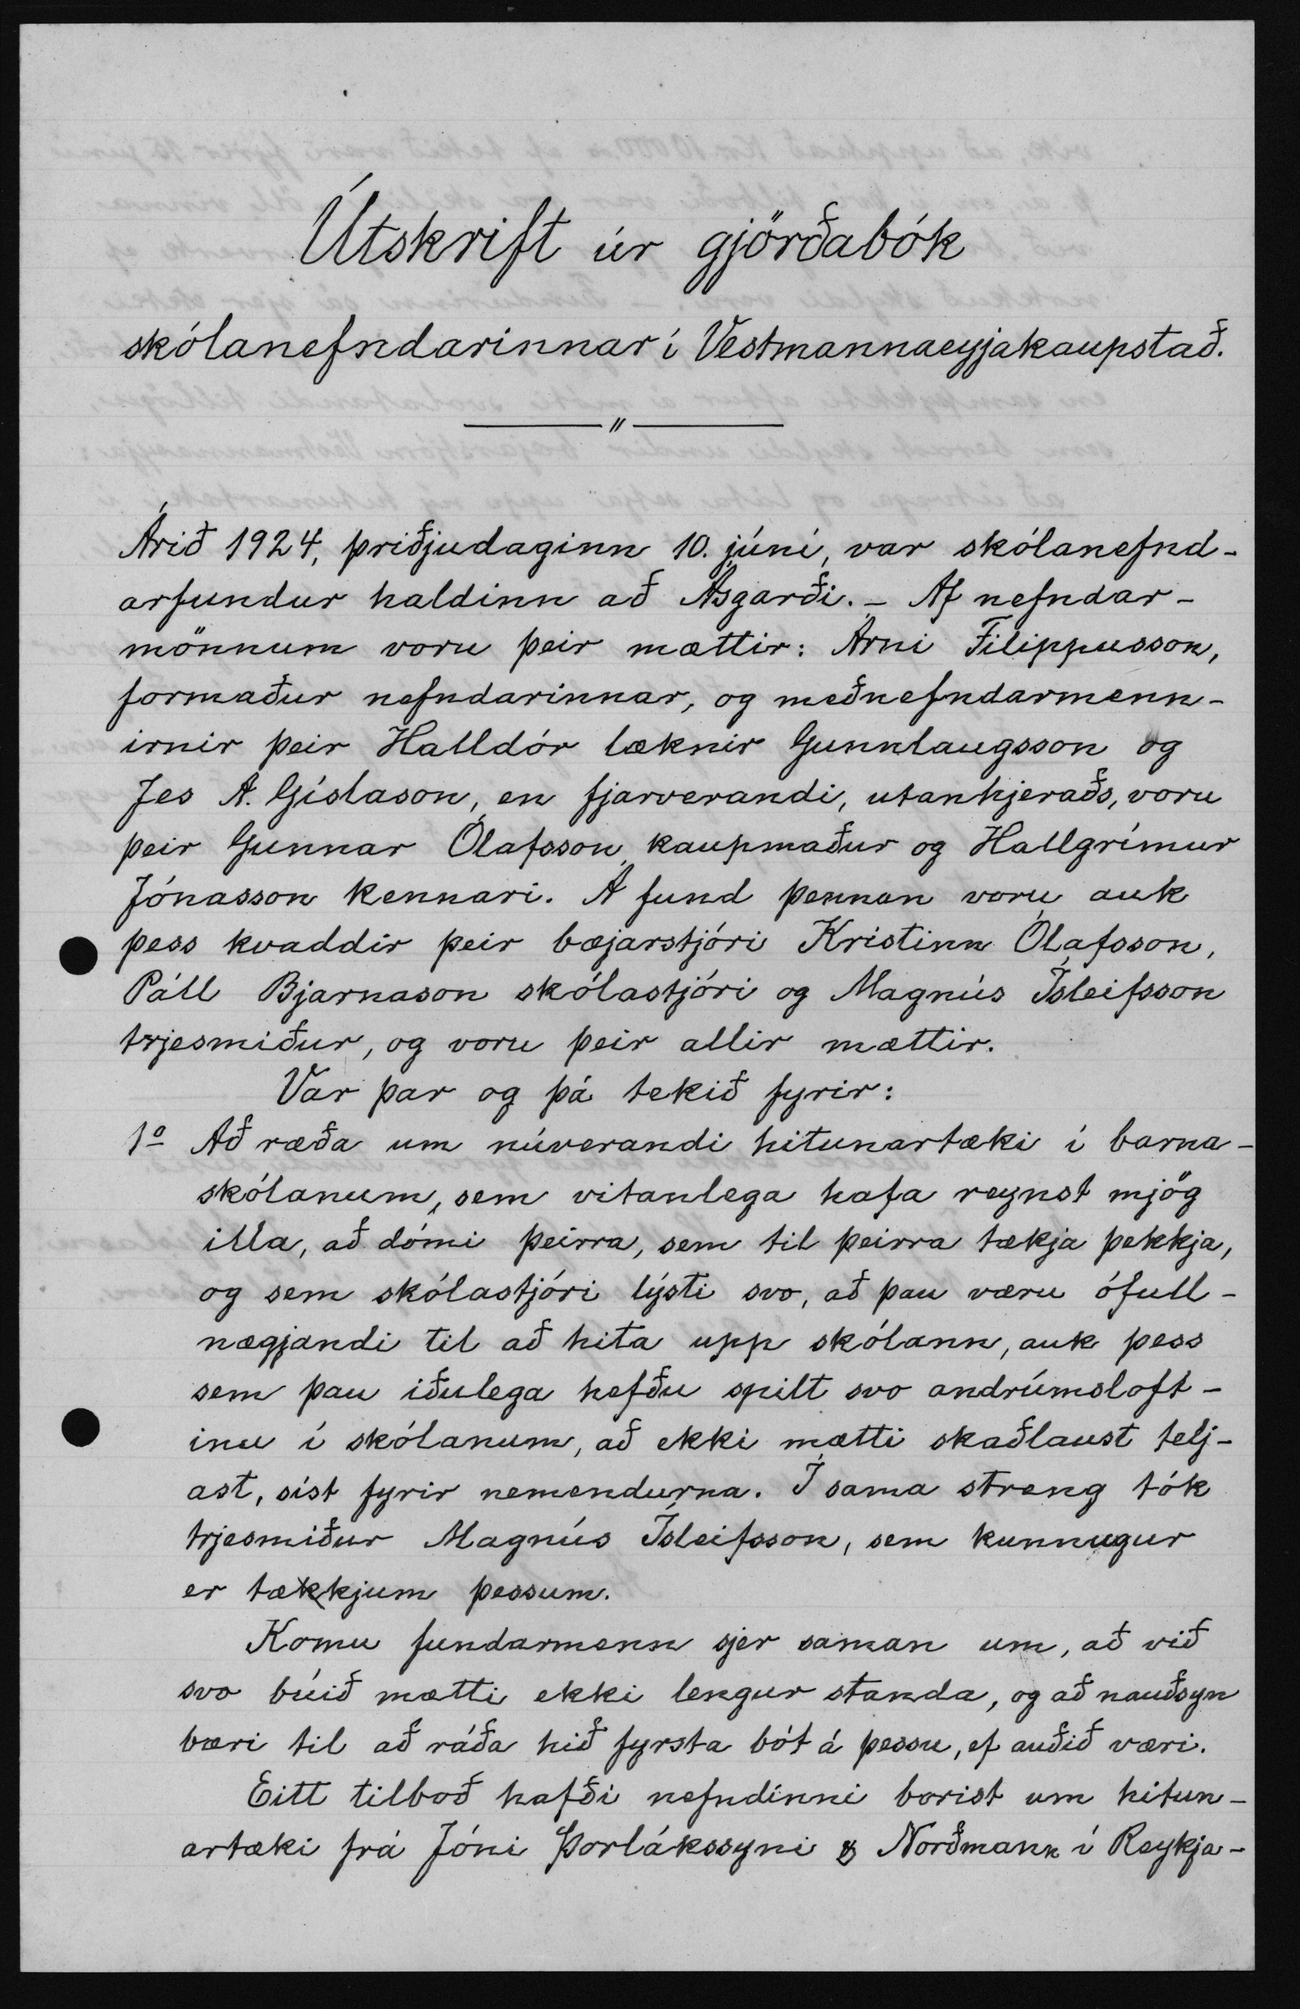 Útskrift úr gjörðabók
skólanefndarinnar í Vestmannaeyjakaupstað.
〃
Árið 1924, þriðjudaginn 10. júní, var skólanefnd-
arfundur haldinn að Ásgarði. - Af nefndar-
mönnum voru þeir mættir: Árni Filippusson,
formaður nefndarinnar, og meðnefndarmenn-
irnir þeir Halldór læknir Gunnlaugsson og
Jes A. Gíslason, en fjarverandi, utanhjeraðs, voru
þeir Gunnar Ólafsson kaupmaður og Hallgrímur
Jónasson kennari. Á fund þennan voru auk
þess kvaddir þeir bæjarstjóri Kristinn Ólafsson,
Páll Bjarnason skólastjóri og Magnús Ísleifsson
trjesmiður, og voru þeir allir mættir.
Var þar og þá tekið fyrir:
1º Að ræða um núverandi hitunartæki í barna-
skólanum, sem vitanlega hafa reynst mjög
illa, að dómi þeirra, sem til þeirra tækja þekkja,
og sem skólastjóri lýsti svo, að þau væru ófull-
nægjandi til að hita upp skólann, auk þess
sem þau iðulega hefðu spilt svo andrúmsloft-
inu í skólanum, að ekki mætti skaðlaust telj-
ast, síst fyrir nemendurna. Í sama streng tók
trjesmiður Magnús Ísleifsson, sem kunnugur
er tækjum þessum.
Komu fundarmenn sjer saman um, að við
svo búið mætti ekki lengur standa, og að nauðsyn
bæri til að ráða hið fyrsta bót á þessu, ef auðið væri.
Eitt tilboð hafði nefndinni borist um hitun-
artæki frá Jóni Þorlákssyni & Norðmann í Reykja-